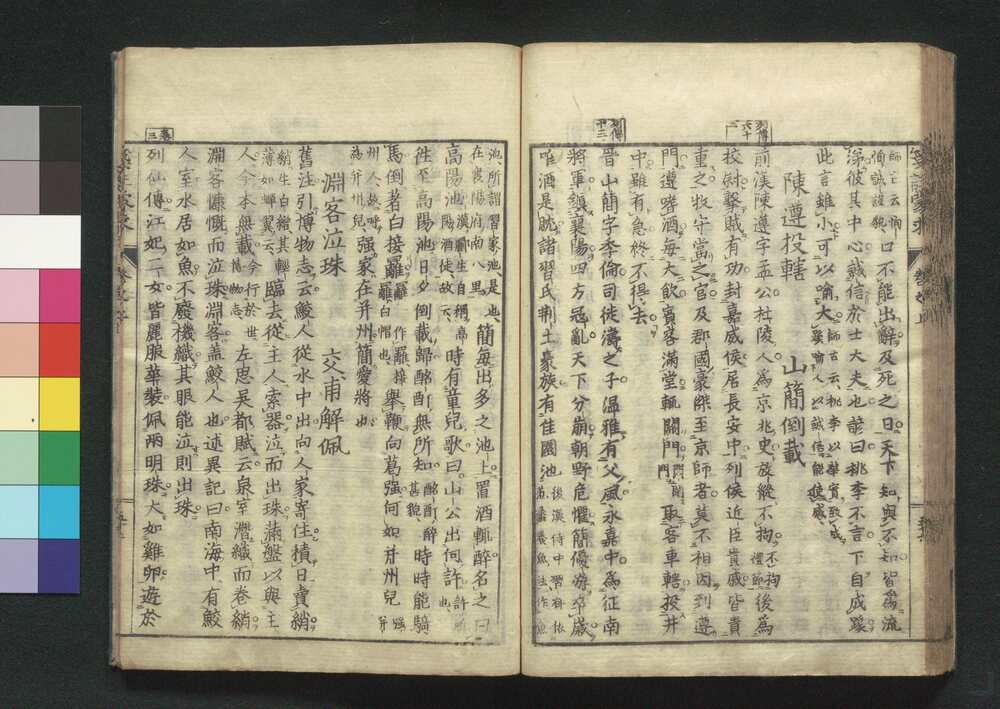 口不能出辭及死之日天下知與不知皆為流
涕彼其中心誠信於士大夫也諺曰桃李不言下自成蹊
此言雖小可以喻大
陳遵投轄 山簡倒載
前漢陳遵字孟公杜陵人為京兆史放縱不拘後為
校尉擊賊有功封嘉威侯居長安中列侯近臣貴戚皆貴
重之牧守當之官及郡國豪傑至京師者莫不相因到遵
門遵嗜酒每大飲賓客滿堂輒關門取客車轄投井
中雖有急終不得去
晉山簡字季倫司徒濤之子溫雅有父風永嘉中為征南
將軍鎮襄陽四方寇亂天下分崩朝野危懼簡優游卒歲
唯酒是耽諸習氏荊土豪族有佳園池
池所謂習家池是也簡每出多之池上置酒輒醉名之曰
在襄陽府南八里
高陽池時有童兒歌曰山公出何許
徃至高陽池日夕倒載歸酩酊無所知時時能騎
馬倒著白接䍦舉鞭向葛强何如并州兒
强家在并州簡愛將也
淵客泣珠 交甫解佩
舊注引博物志云鮫人從水中出向人家寄住積日賣綃
臨去從主人索器泣而出珠滿盤以與主
人今本無載左思吳都賦云泉室潛織而卷綃
淵客慷慨而泣珠淵客盖鮫人也述異記曰南海中有鮫
人室水居如魚不廢機織其眼能泣則出珠
列仙傳江妃二女皆麗服華裝佩兩明珠大如雞卵遊於